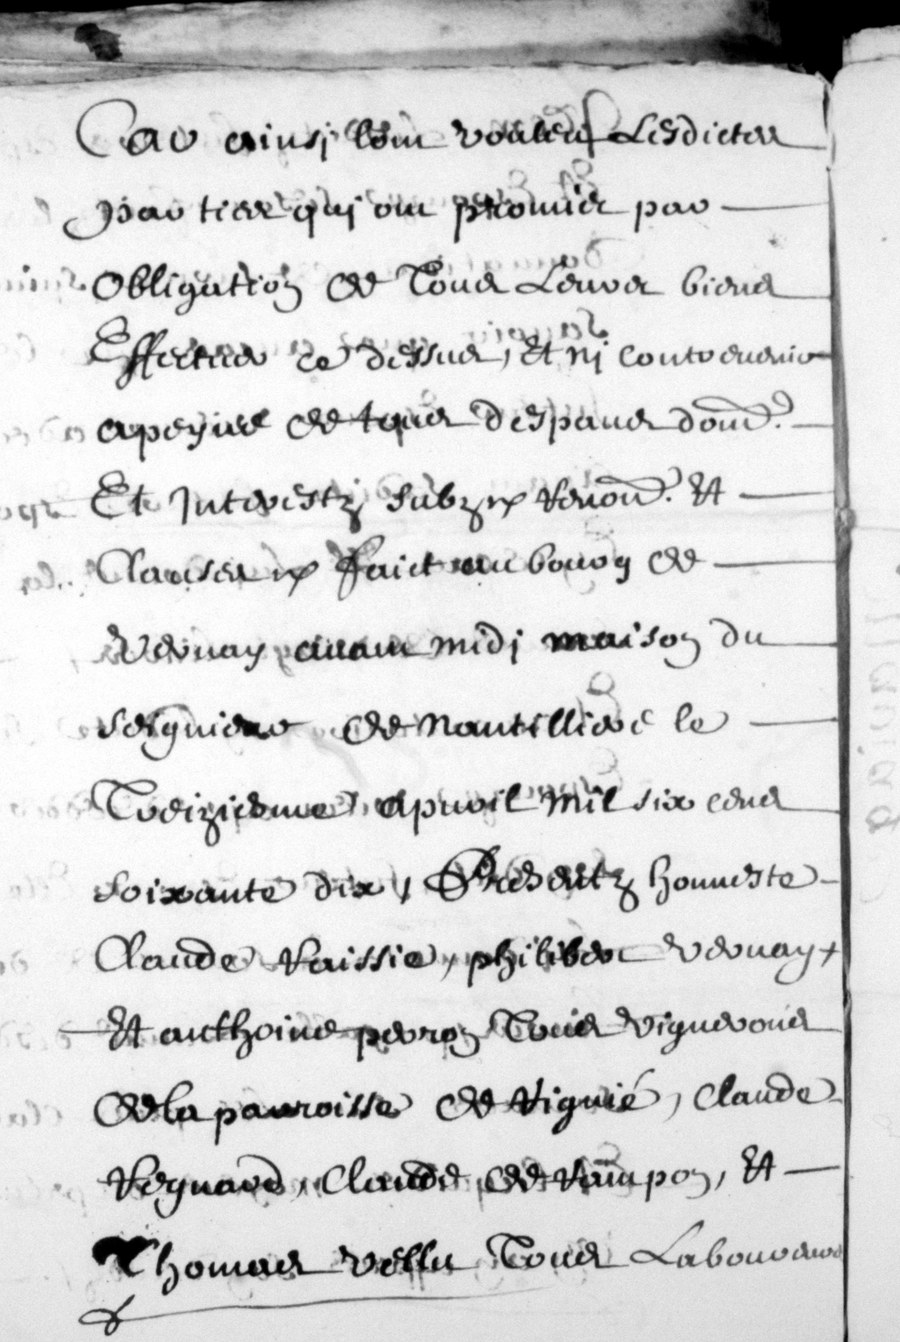 Car ainsi lont vouleu Lesdictes
parties qui ont promier par
obligation de Tous Leurs biens
Effectuer ce dessus, Et ni contrevenir
a peyne de tous despans dom.
Et Interestz subz renon. Et
Clauses faict au bourg de
Vernay avant midi maison du
seignieur de Nantilliere le
Treizieme apvril mil six cens
soixante dix, Presentz honneste
Claude Raissie, philibert Vernay
Et anthoine perron Tous vignerons
de la parroisse de, Claude
Regnard, Claude de Rampon, Et
Thomas Vellu Tous Laboureurs